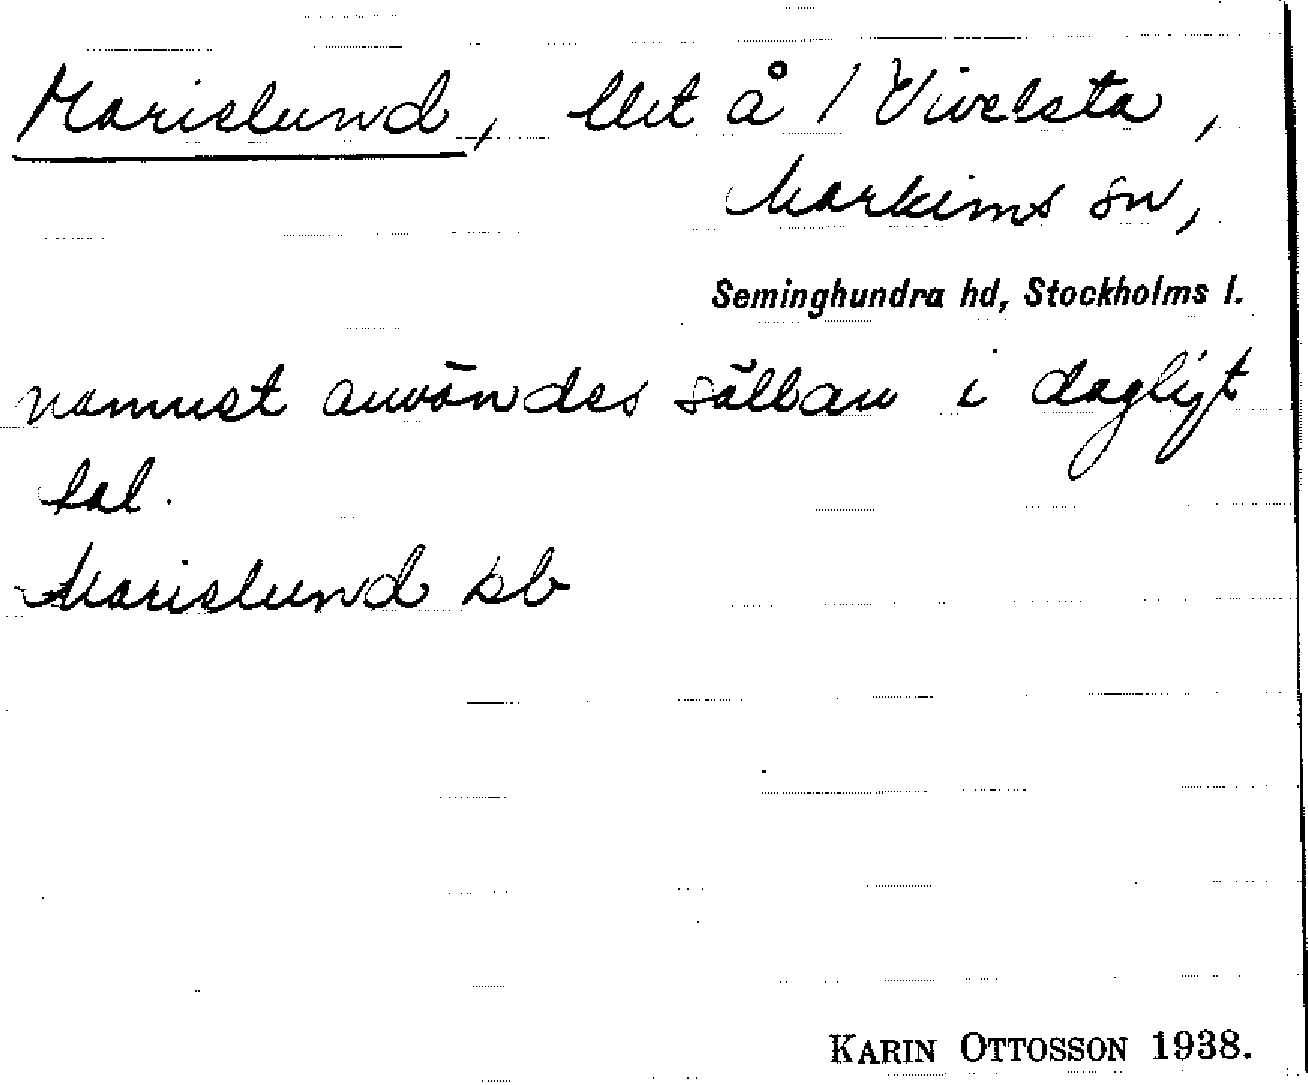 Marislund, llit å 1 Vivelsta,
Markims sn,
Seminghundra hd, Stockholms l.
namnet användes sällan i dagligt
tal.
Marislund kb
KARIN OTTOSSON 1938.